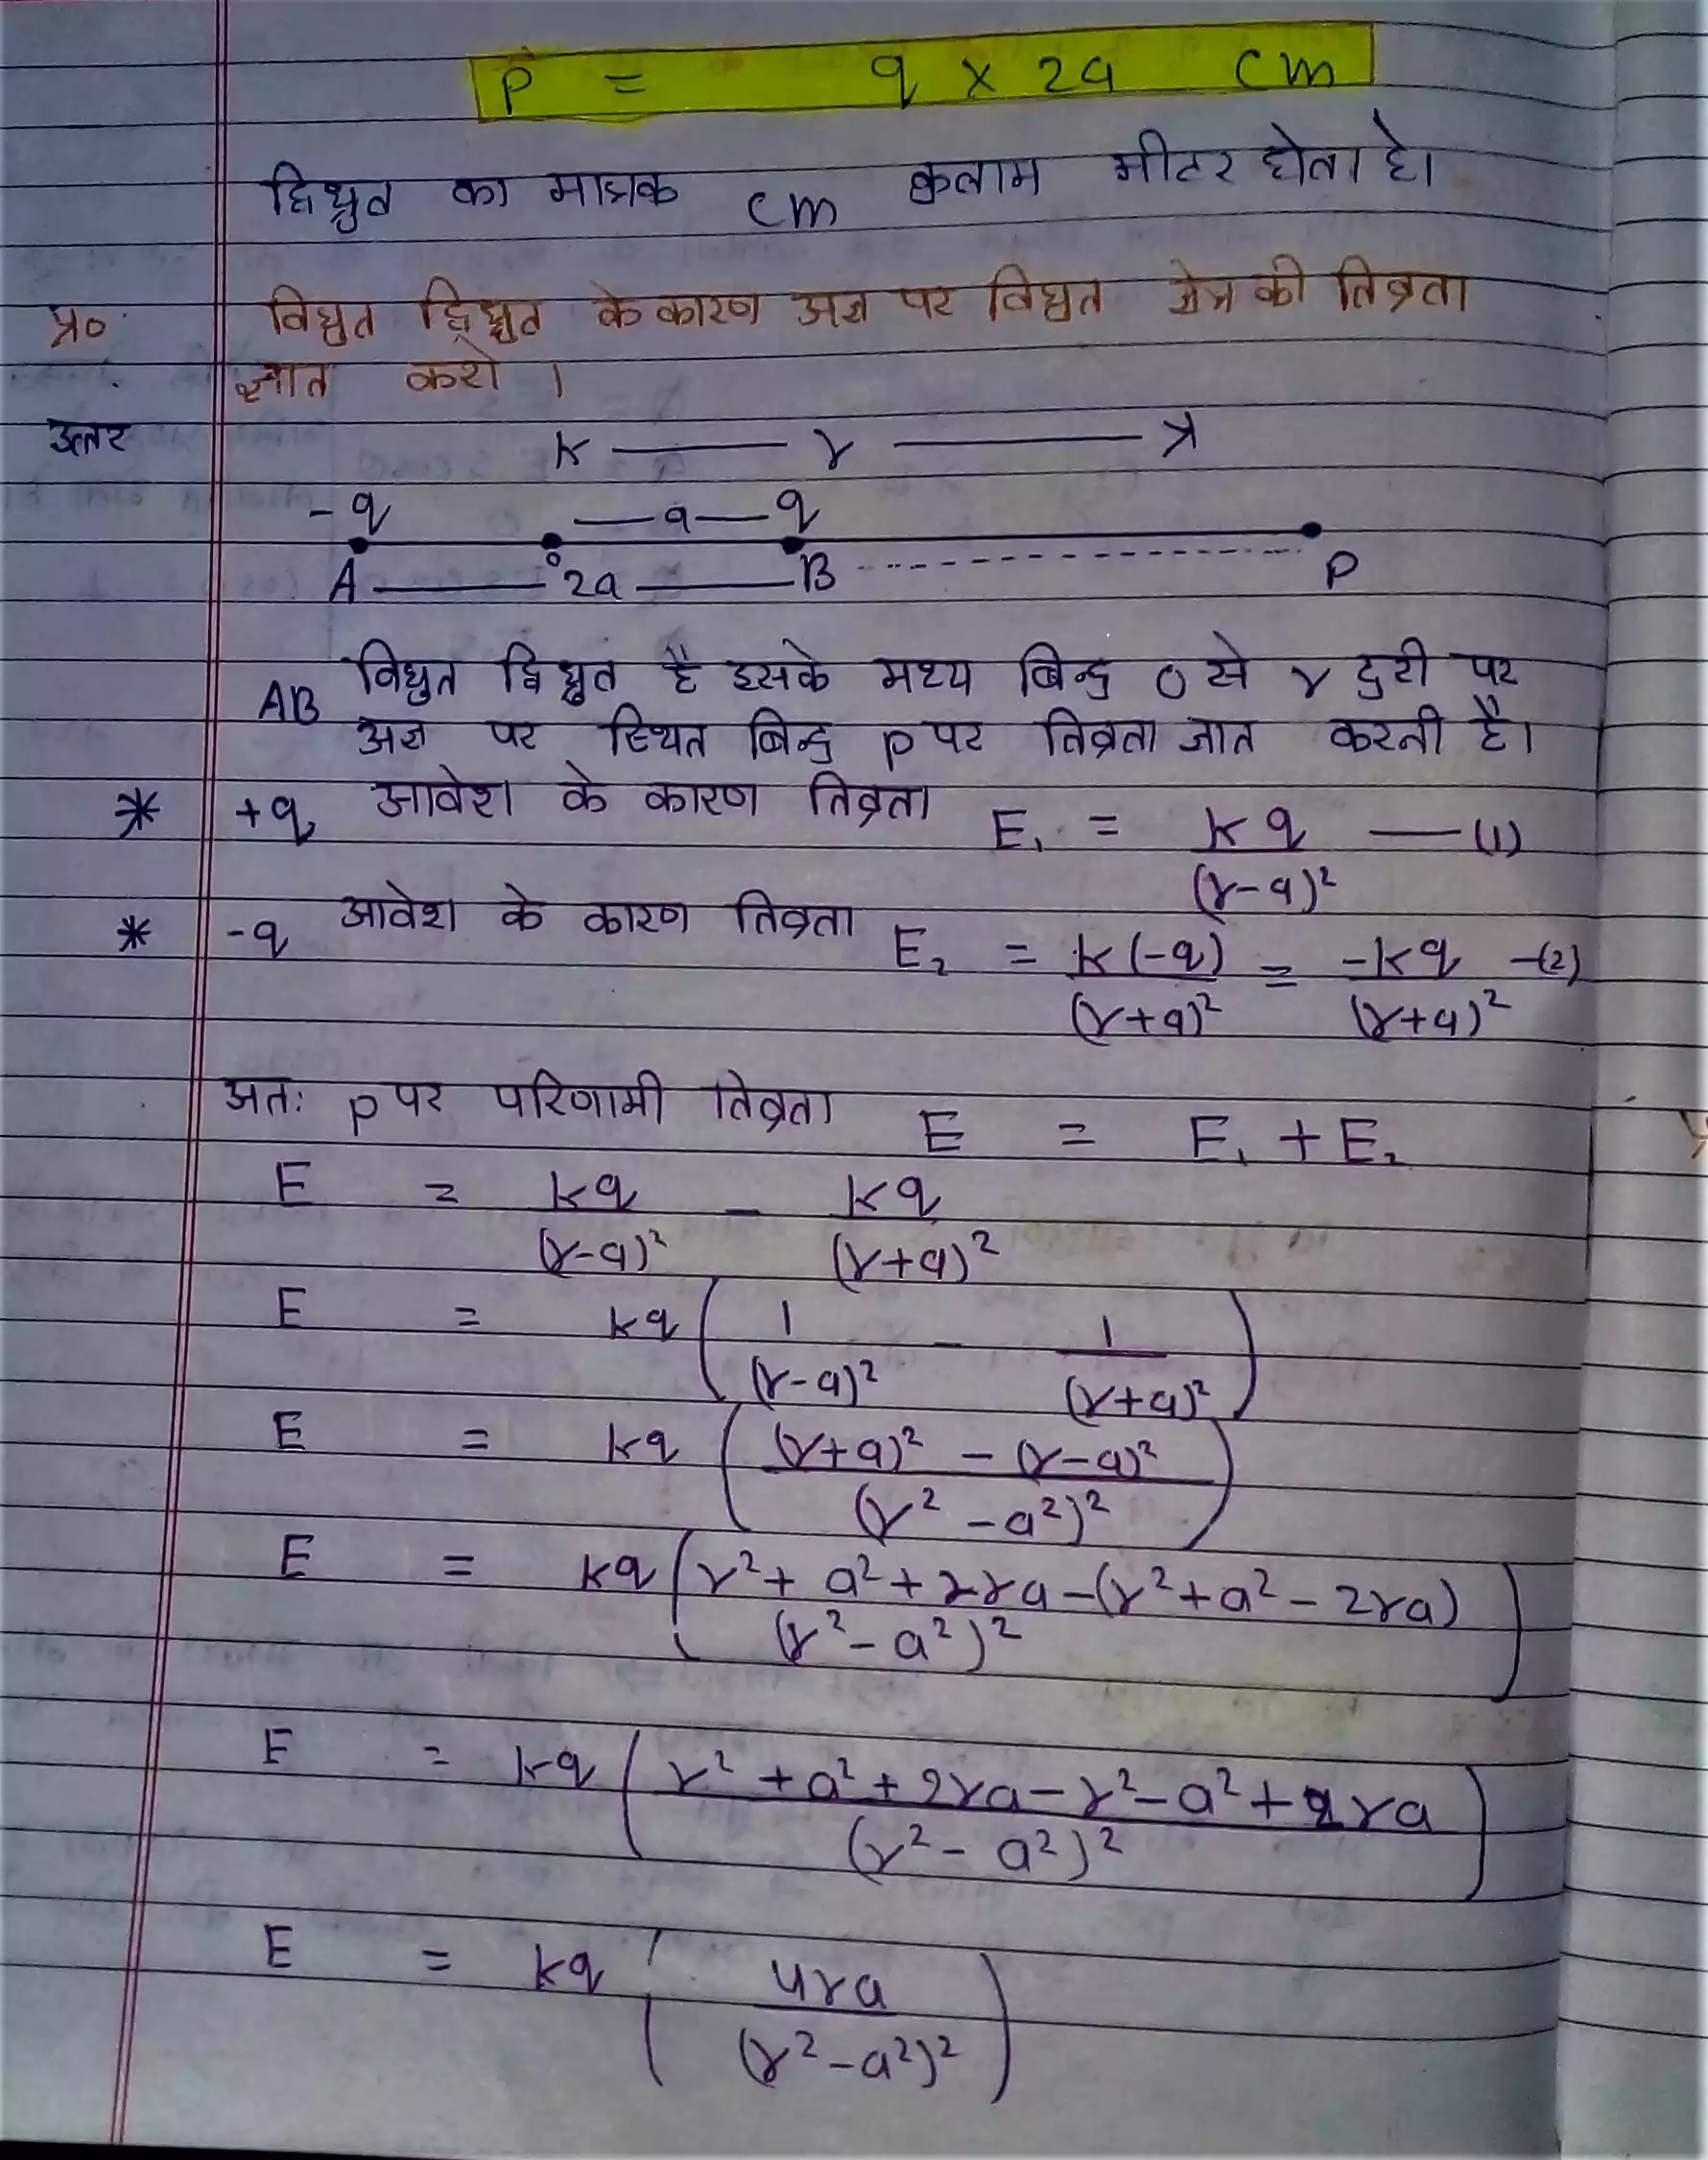 P = q × 2a cm
द्विध्रुत का मात्रक cm कुलाम मीटर होता है।
प्र० विधुत द्विध्रुत के कारण अक्ष पर विधुत क्षेत्र की तिव्रता
ज्ञात करो ।
उत्तर
K — r — K
-q — a — q
A — o 2a — B ------- P
AB विधुत द्विध्रुत है इसके मध्य बिन्दु O से r दुरी पर
अक्ष पर स्थित बिन्दु P पर तिव्रता ज्ञात करनी है।
* +q आवेश के कारण तिव्रता E₁ = kq/(r-a)² — (1)
* -q आवेश के कारण तिव्रता E₂ = k(-q)/(r+a)² = -kq/(r+a)² -(2)
अतः P पर परिणामी तिव्रता E = E₁ + E₂
E = kq/(r-a)² - kq/(r+a)²
E = kq (1/(r-a)² - 1/(r+a)²)
E = kq ((r+a)² - (r-a)²/(r² - a²)²)
E = kq (r² + a² + 2ra - (r² + a² - 2ra)/(r² - a²)²)
E = kq (r² + a² + 2ra - r² - a² + 2ra/(r² - a²)²)
E = kq (4ra/(r² - a²)²)